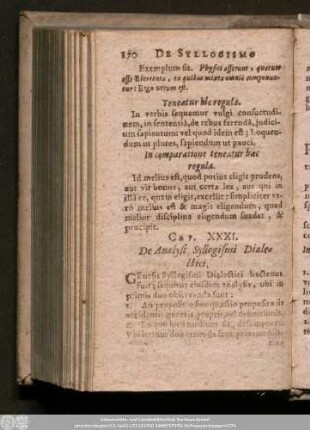 150 DE SYLLOGISMO
Exemplum sit. Physici asserunt, quatuor
esse Elementa, ex quibus mixta omnia componan-
tur: Ergo verum est.
Teneatur hic regula.
In verbis sequamur vulgi consuetudi-
nem, in sententiâ, de rebus ferendâ, judici-
um sapientum: vel quod idem est; Loquen-
dum ut plures, sapiendum ut pauci.
In comparatione teneatur hæc
regula.
Id melius est, quod potius eligit prudens,
aut vir bonus, aut certa lex, aut qui in
illâ re, quam eligit, excellit: simpliciter ve-
rò melius est & magis eligendum, quod
melior disciplina eligendum suadet, &
præcipit.
CAP. XXXI.
De Analysi Syllogismi Diale-
ctici.
Genesis Syllogismi Dialectici hactenus
fuit; sequitur ejusdem analysis, ubi in
primis duo observanda sunt:
1. An propositio sit
2.